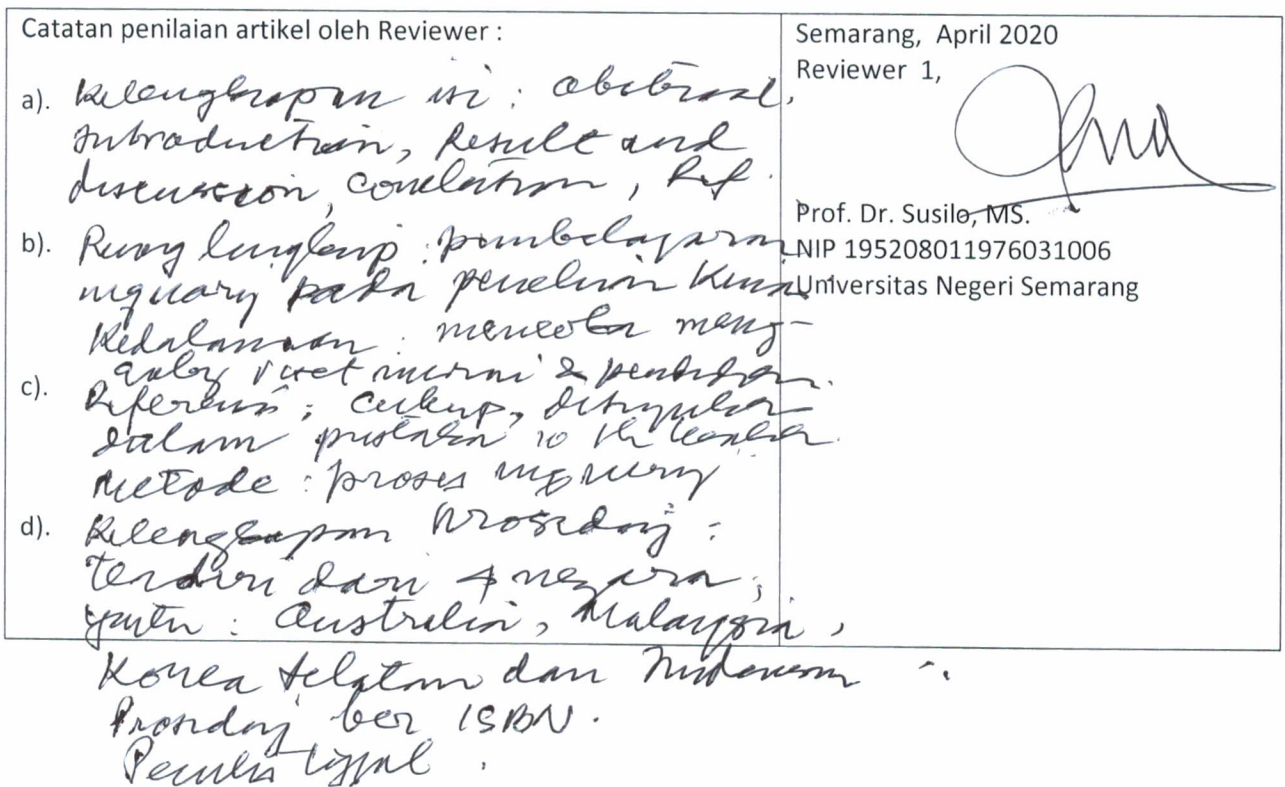 Catatan penilaian artikel oleh Reviewer :
a). Kelengkapan isi : abstract,
introduction, Result and
discussion, conclution, Ref.
b). Ruang lingkup : pembelajaran
inquiry pada penelitian Kimia
Kedalaman : mencoba meng-
riset murni & pendidikan.
c). Referensi : cukup,
dalam pustaka 10 th
Metode : proses inquiry
d). Kelengkapan Prosiding :
terdiri dari 4 negara,
yaitu : Australia, Malaysia,
Korea Selatan dan Indonesia
Prosiding ber ISBN.
Penulis tunggal.
Semarang, April 2020
Reviewer 1,
Prof. Dr. Susilo, MS.
NIP 195208011976031006
Universitas Negeri Semarang